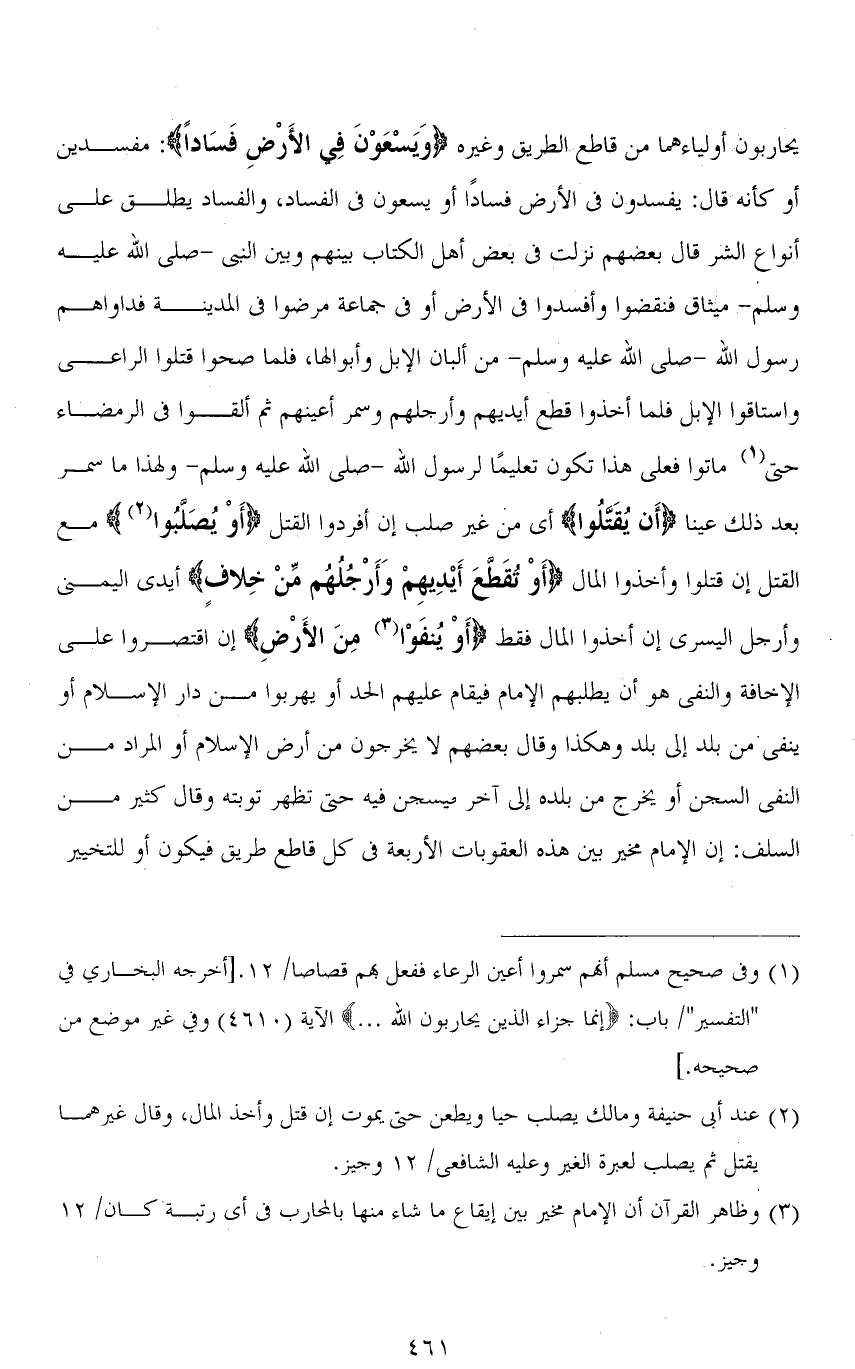 يحاربون أولياءهما من قاطع الطريق وغيره ﴿وَيَسْعَوْنَ فِي الأَرْضِ فَسَاداً﴾: مفسدين
أو كأنه قال: يفسدون فى الأرض فسادًا أو يسعون فى الفساد، والفساد يطلق على
أنواع الشر قال بعضهم نزلت فى بعض أهل الكتاب بينهم وبين النبى -صلى الله عليه
وسلم- ميثاق فنقضوا وأفسدوا فى الأرض أو فى جماعة مرضوا فى المدينة فداواهم
رسول الله -صلى الله عليه وسلم- من ألبان الإبل وأبوالها، فلما صحوا قتلوا الراعى
واستاقوا الإبل فلما أخذوا قطع أيديهم وأرجلهم وسمر أعينهم ثم ألقوا فى الرمضاء
حتى(١) ماتوا فعلى هذا تكون تعليمًا لرسول الله -صلى الله عليه وسلم- ولهذا ما سمر
بعد ذلك عينا ﴿أَن يُقَتَّلُوا﴾ أى من غير صلب إن أفردوا القتل ﴿أَوْ يُصَلَّبُوا(٢)﴾ مع
القتل إن قتلوا وأخذوا المال ﴿أَوْ تُقَطَّعَ أَيْدِيهِمْ وَأَرْجُلُهُم مِّنْ خِلافٍ﴾ أيدى اليمنى
وأرجل اليسرى إن أخذوا المال فقط ﴿أَوْ يُنفَوْا(٣) مِنَ الأَرْضِ﴾ إن اقتصروا على
الإخافة والنفى هو أن يطلبهم الإمام فيقام عليهم الحد أو يهربوا من دار الإسلام أو
ينفى من بلد إلى بلد وهكذا وقال بعضهم لا يخرجون من أرض الإسلام أو المراد من
النفى السجن أو يخرج من بلده إلى آخر فيسجن فيه حتى تظهر توبته وقال كثير من
السلف: إن الإمام مخير بين هذه العقوبات الأربعة فى كل قاطع طريق فيكون أو للتخيير
(١) وفى صحيح مسلم أنهم سمروا أعين الرعاء ففعل بهم قصاصا/ ١٢.[أخرجه البخاري في
"التفسير"/ باب: ﴿إنما جزاء الذين يحاربون الله ...﴾ الآية (٤٦١٠) وفي غير موضع من
صحيحه.]
(٢) عند أبى حنيفة ومالك يصلب حيا ويطعن حتى يموت إن قتل وأخذ المال، وقال غيرهما
يقتل ثم يصلب لعبرة الغير وعليه الشافعى/ ١٢ وجيز.
(٣) وظاهر القرآن أن الإمام مخير بين إيقاع ما شاء منها بالمحارب فى أى رتبة كان/ ١٢
وجيز.
٤٦١